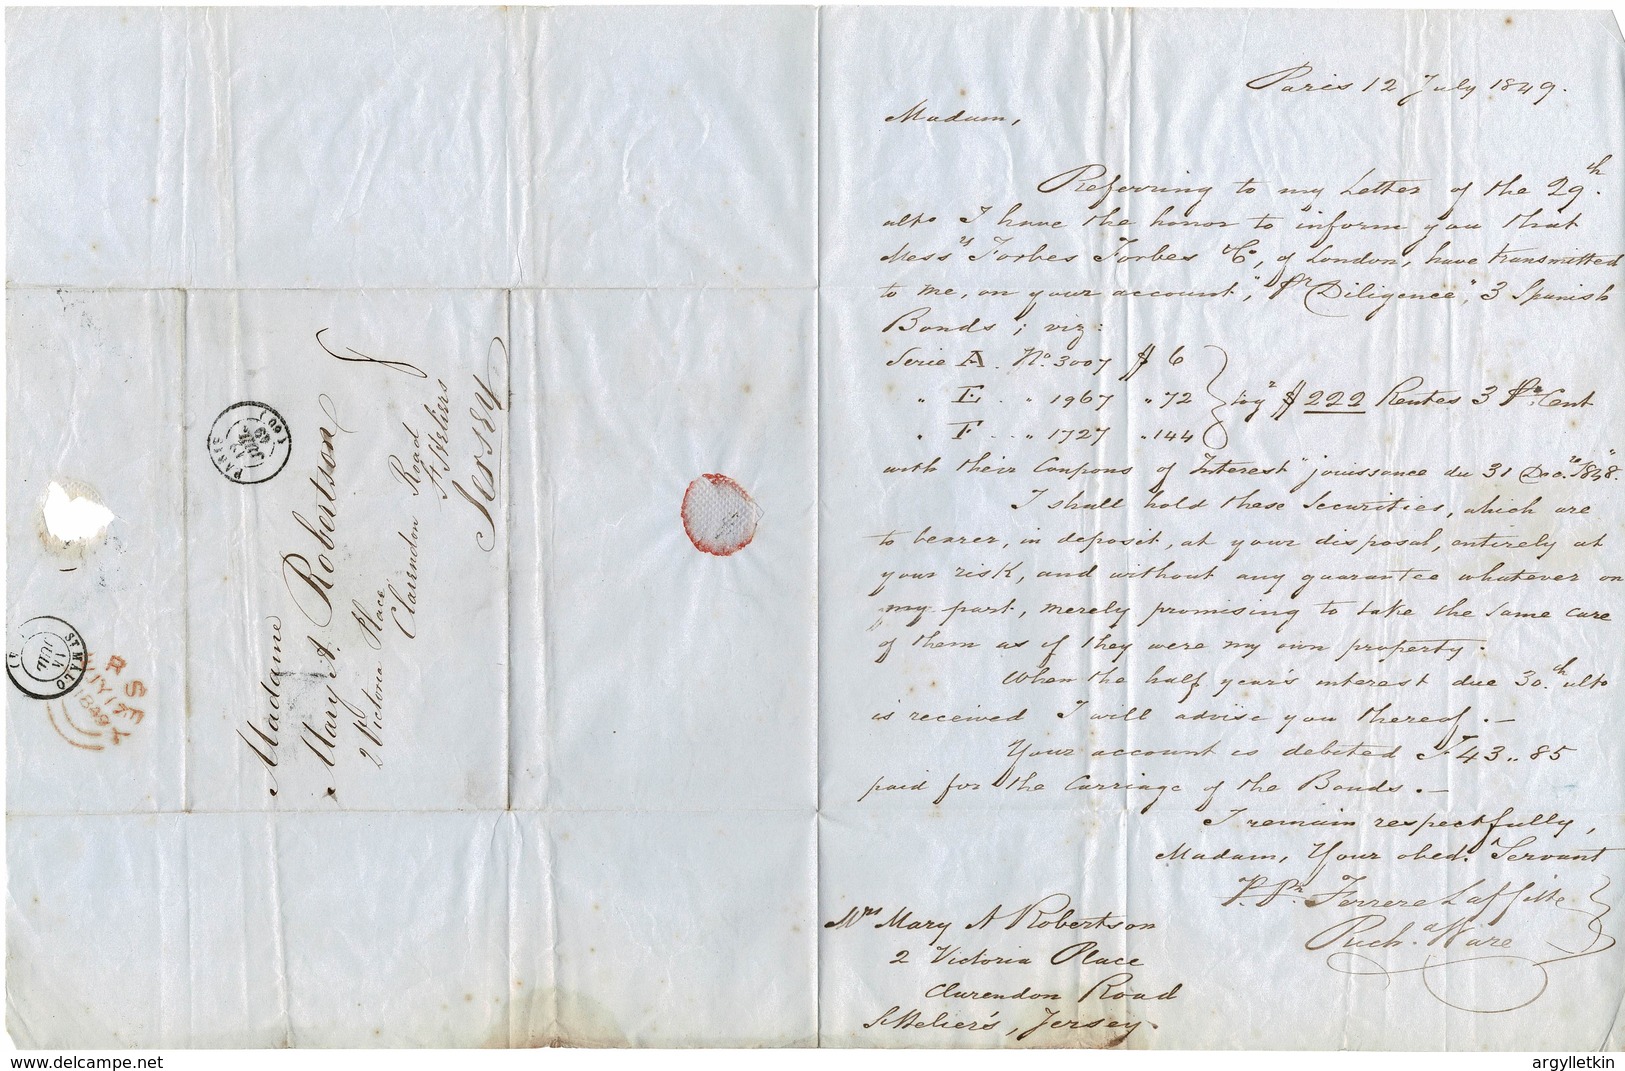 Paris 12 July 1849.
Madam,
Referring to my Letter of the 29th.
ulto I have the honor to inform you that
Messrs Forbes Forbes & Co, of London, have transmitted
to me, on your account, "pr Diligence", 3 Spanish
Bonds; viz:
Serie A. No. 3007 $ 6
" E. " 1967 " 72 } $ 222 Rentes 3 Pr. Cent
" F " 1727 " 144
with their Coupons of Interest "jouissance du 31 Dec. 1848."
I shall hold these Securities, which are
to bearer, in deposit, at your disposal, entirely at
your risk, and without any guarantee whatever on
my part, merely promising to take the same care
of them as if they were my own property.
When the half year's interest due 30th ulto
is received I will advise you thereof. —
Your account is debited F 43..85
paid for the Carriage of the Bonds. —
I remain respectfully,
Madam, Your obed. Servant
P. Pr. Ferrere Laffitte
Rich. Ware
Mrs Mary A Robertson
2 Victoria Place
Clarendon Road
St Helier's, Jersey.
Madame
Mary A. Robertson
2 Victoria Place
Clairendon Road
St Heliers
Jersey
PARIS
12
JUIL
49
(60)
ST MALO
14
JUIL
JERSEY
JY 17
1849
argylletkin
www.delcampe.net